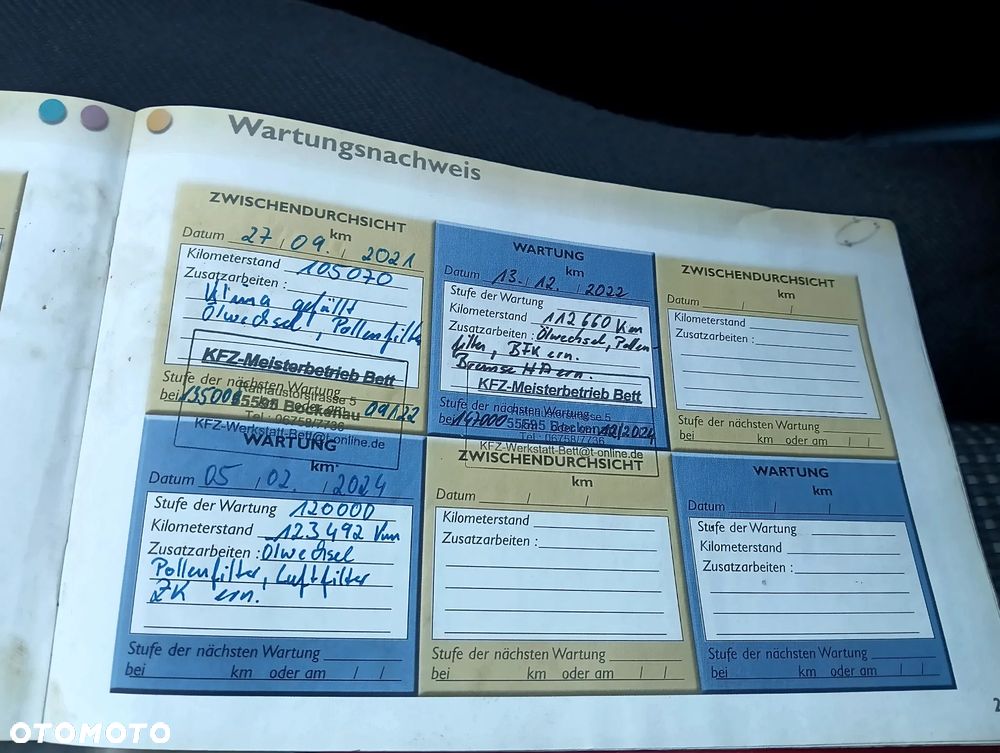 Wartungsnachweis
ZWISCHENDURCHSICHT
km
Datum 27 / 09. / 2021
Kilometerstand 105070
Zusatzarbeiten :
Klima gefüllt
Ölwechsel, Pollenfilter
KFZ-Meisterbetrieb Bett
Stufe der nächsten Wartung
bei 135000 km oder am 09/22
55595 Bockenau
Tel.: 06758/7736
KFZ-Werkstatt-Bett@t-online.de
WARTUNG
km
Datum 13. / 12. / 2022
Stufe der Wartung
Kilometerstand 112660 Km
Zusatzarbeiten : Ölwechsel, Pollen-
filter, BFK ern.
Bremse HA ern.
KFZ-Meisterbetrieb Bett
Stufe der nächsten Wartung
bei 147000 km oder am 12/2024
55595 Bockenau
Tel.: 06758/7736
KFZ-Werkstatt-Bett@t-online.de
ZWISCHENDURCHSICHT
km
Datum / /
Kilometerstand
Zusatzarbeiten :
Stufe der nächsten Wartung
bei km oder am / /
WARTUNG
km
Datum 05 / 02. / 2024
Stufe der Wartung 120000
Kilometerstand 123492 Km
Zusatzarbeiten : Ölwechsel
Pollenfilter, Luftfilter
ZK ern.
Stufe der nächsten Wartung
bei km oder am / /
ZWISCHENDURCHSICHT
km
Datum / /
Kilometerstand
Zusatzarbeiten :
Stufe der nächsten Wartung
bei km oder am / /
WARTUNG
km
Datum / /
Stufe der Wartung
Kilometerstand
Zusatzarbeiten :
Stufe der nächsten Wartung
bei km oder am / /
OTOMOTO